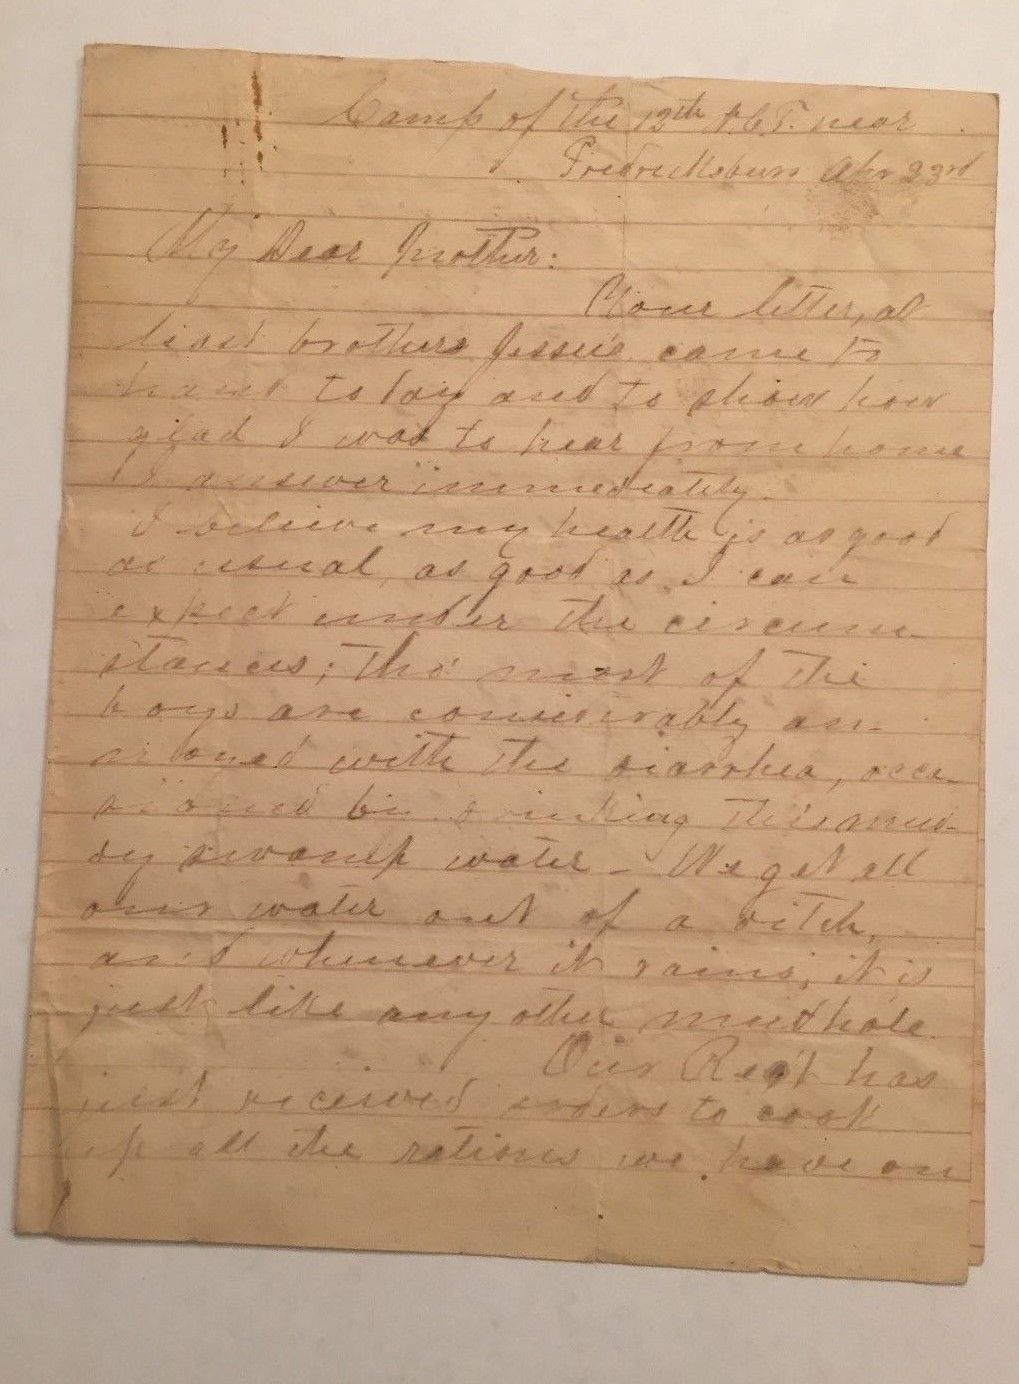 Camp of the 13th N.C.T. near
Fredricksburn Apr 23rd
My Dear Mother:
Your letter, at
least brothers Jessie's came to
hand to day and to show how
glad I was to hear from home
I answer immediately.
I believe my health is as good
as usual, as good as I can
expect under the circum-
stances; tho' most of the
boys are considerably an-
with the diarrhea, occa-
sioned by drinking this mud-
dy swamp water - We get all
our water out of a ditch,
and whenever it rains, it is
just like any other mudhole
Our Reg't has
just received orders to cook
up all the rations we have on